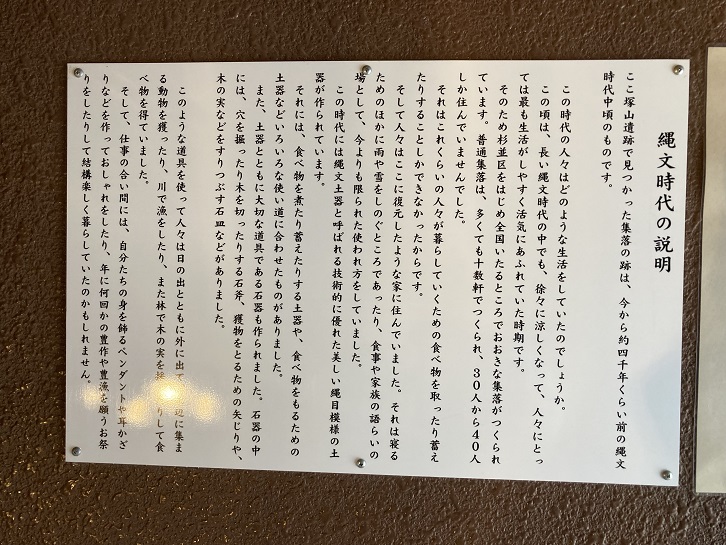 縄文時代の説明
ここ塚山遺跡で見つかった集落の跡は、今から約四千年くらい前の縄文
時代中頃のものです。
この時代の人々はどのような生活をしていたのでしょうか。
この頃は、長い縄文時代の中でも、徐々に涼しくなって、人々にとっ
ては最も生活がしやすく活気にあふれていた時期です。
そのため杉並区をはじめ全国いたるところでおおきな集落がつくられ
ています。普通集落は、多くても十数軒でつくられ、30人から40人
しか住んでいませんでした。
それはこれくらいの人々が暮らしていくための食べ物を取ったり蓄え
たりすることしかできなかったからです。
そして人々はここに復元したような家に住んでいました。それは寝る
ためのほかに雨や雪をしのぐところであったり、食事や家族の語らいの
場として、今よりも限られた使われ方をしていました。
この時代には縄文土器と呼ばれる技術的に優れた美しい縄目模様の土
器が作られています。
それには、食べ物を煮たり蓄えたりする土器や、食べ物をもるための
土器などいろいろな使い道に合わせたものがありました。
また、土器とともに大切な道具である石器も作られました。石器の中
には、穴を掘ったり木を切ったりする石斧、獲物をとるための矢じりや、
木の実などをすりつぶす石皿などがありました。
このような道具を使って人々は日の出とともに外に出て 辺に集ま
る動物を獲ったり、川で漁をしたり、また林で木の実を りして食
べ物を得ていました。
そして、仕事の合い間には、自分たちの身を飾るペンダントや耳かざ
りなどを作っておしゃれをしたり、年に何回かの豊作や豊漁を願うお祭
りをしたりして結構楽しく暮らしていたのかもしれません。